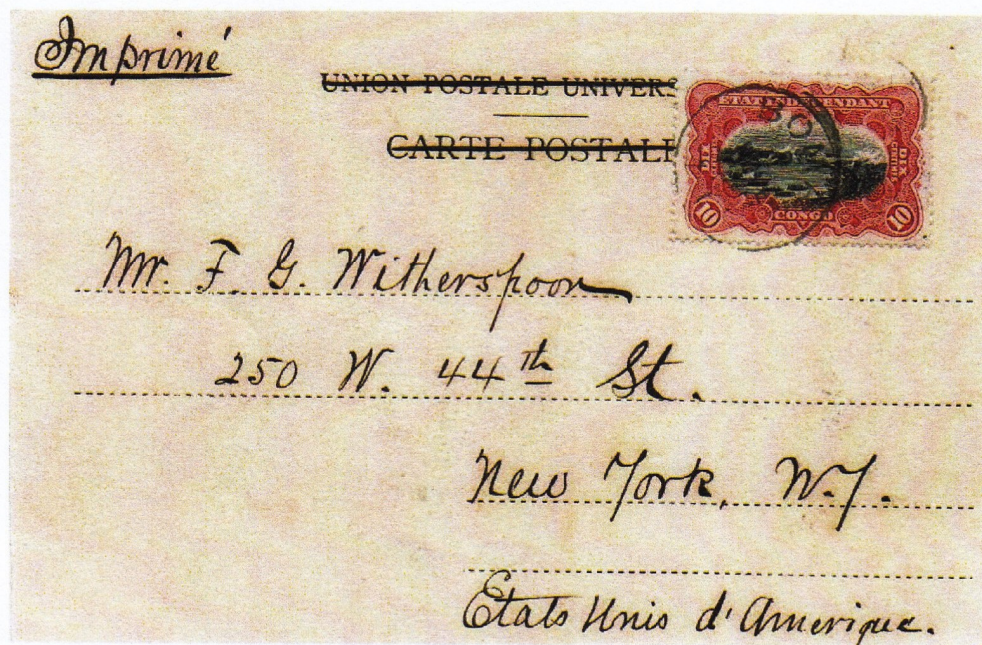 Imprimé
UNION POSTALE UNIVERS
CARTE POSTALE
ETAT INDEPENDANT
BO
DIX
DIX
CENTIMES
10
CONGO
10
Mr. F. G. Witherspoon
250 W. 44th St.
New York, N.Y.
Etats Unis d'Amerique.